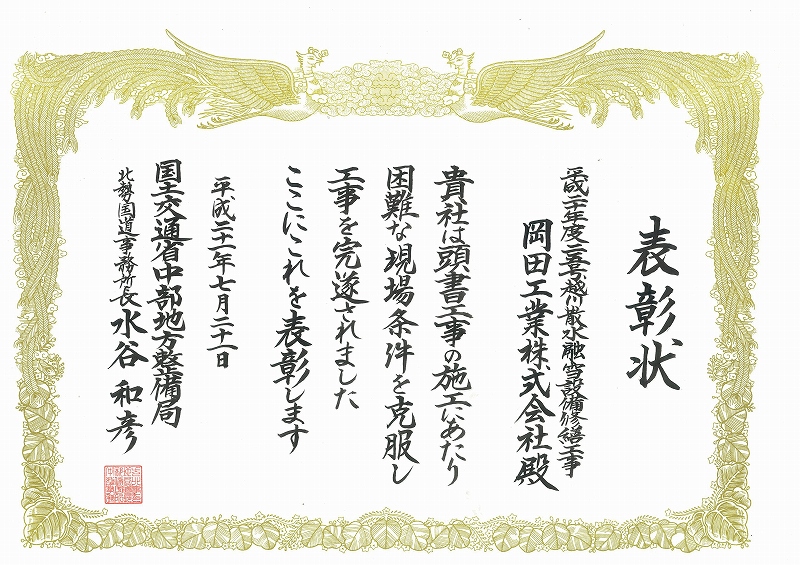 表彰状
平成二十年度三雲弓越川散水融雪設備修繕工事
岡田工業株式会社殿
貴社は頭書工事の施工にあたり
困難な現場条件を克服し
工事を完遂されました
ここにこれを表彰します
平成二十一年七月二十一日
国土交通省中部地方整備局
北勢国道事務所長 水谷和彦